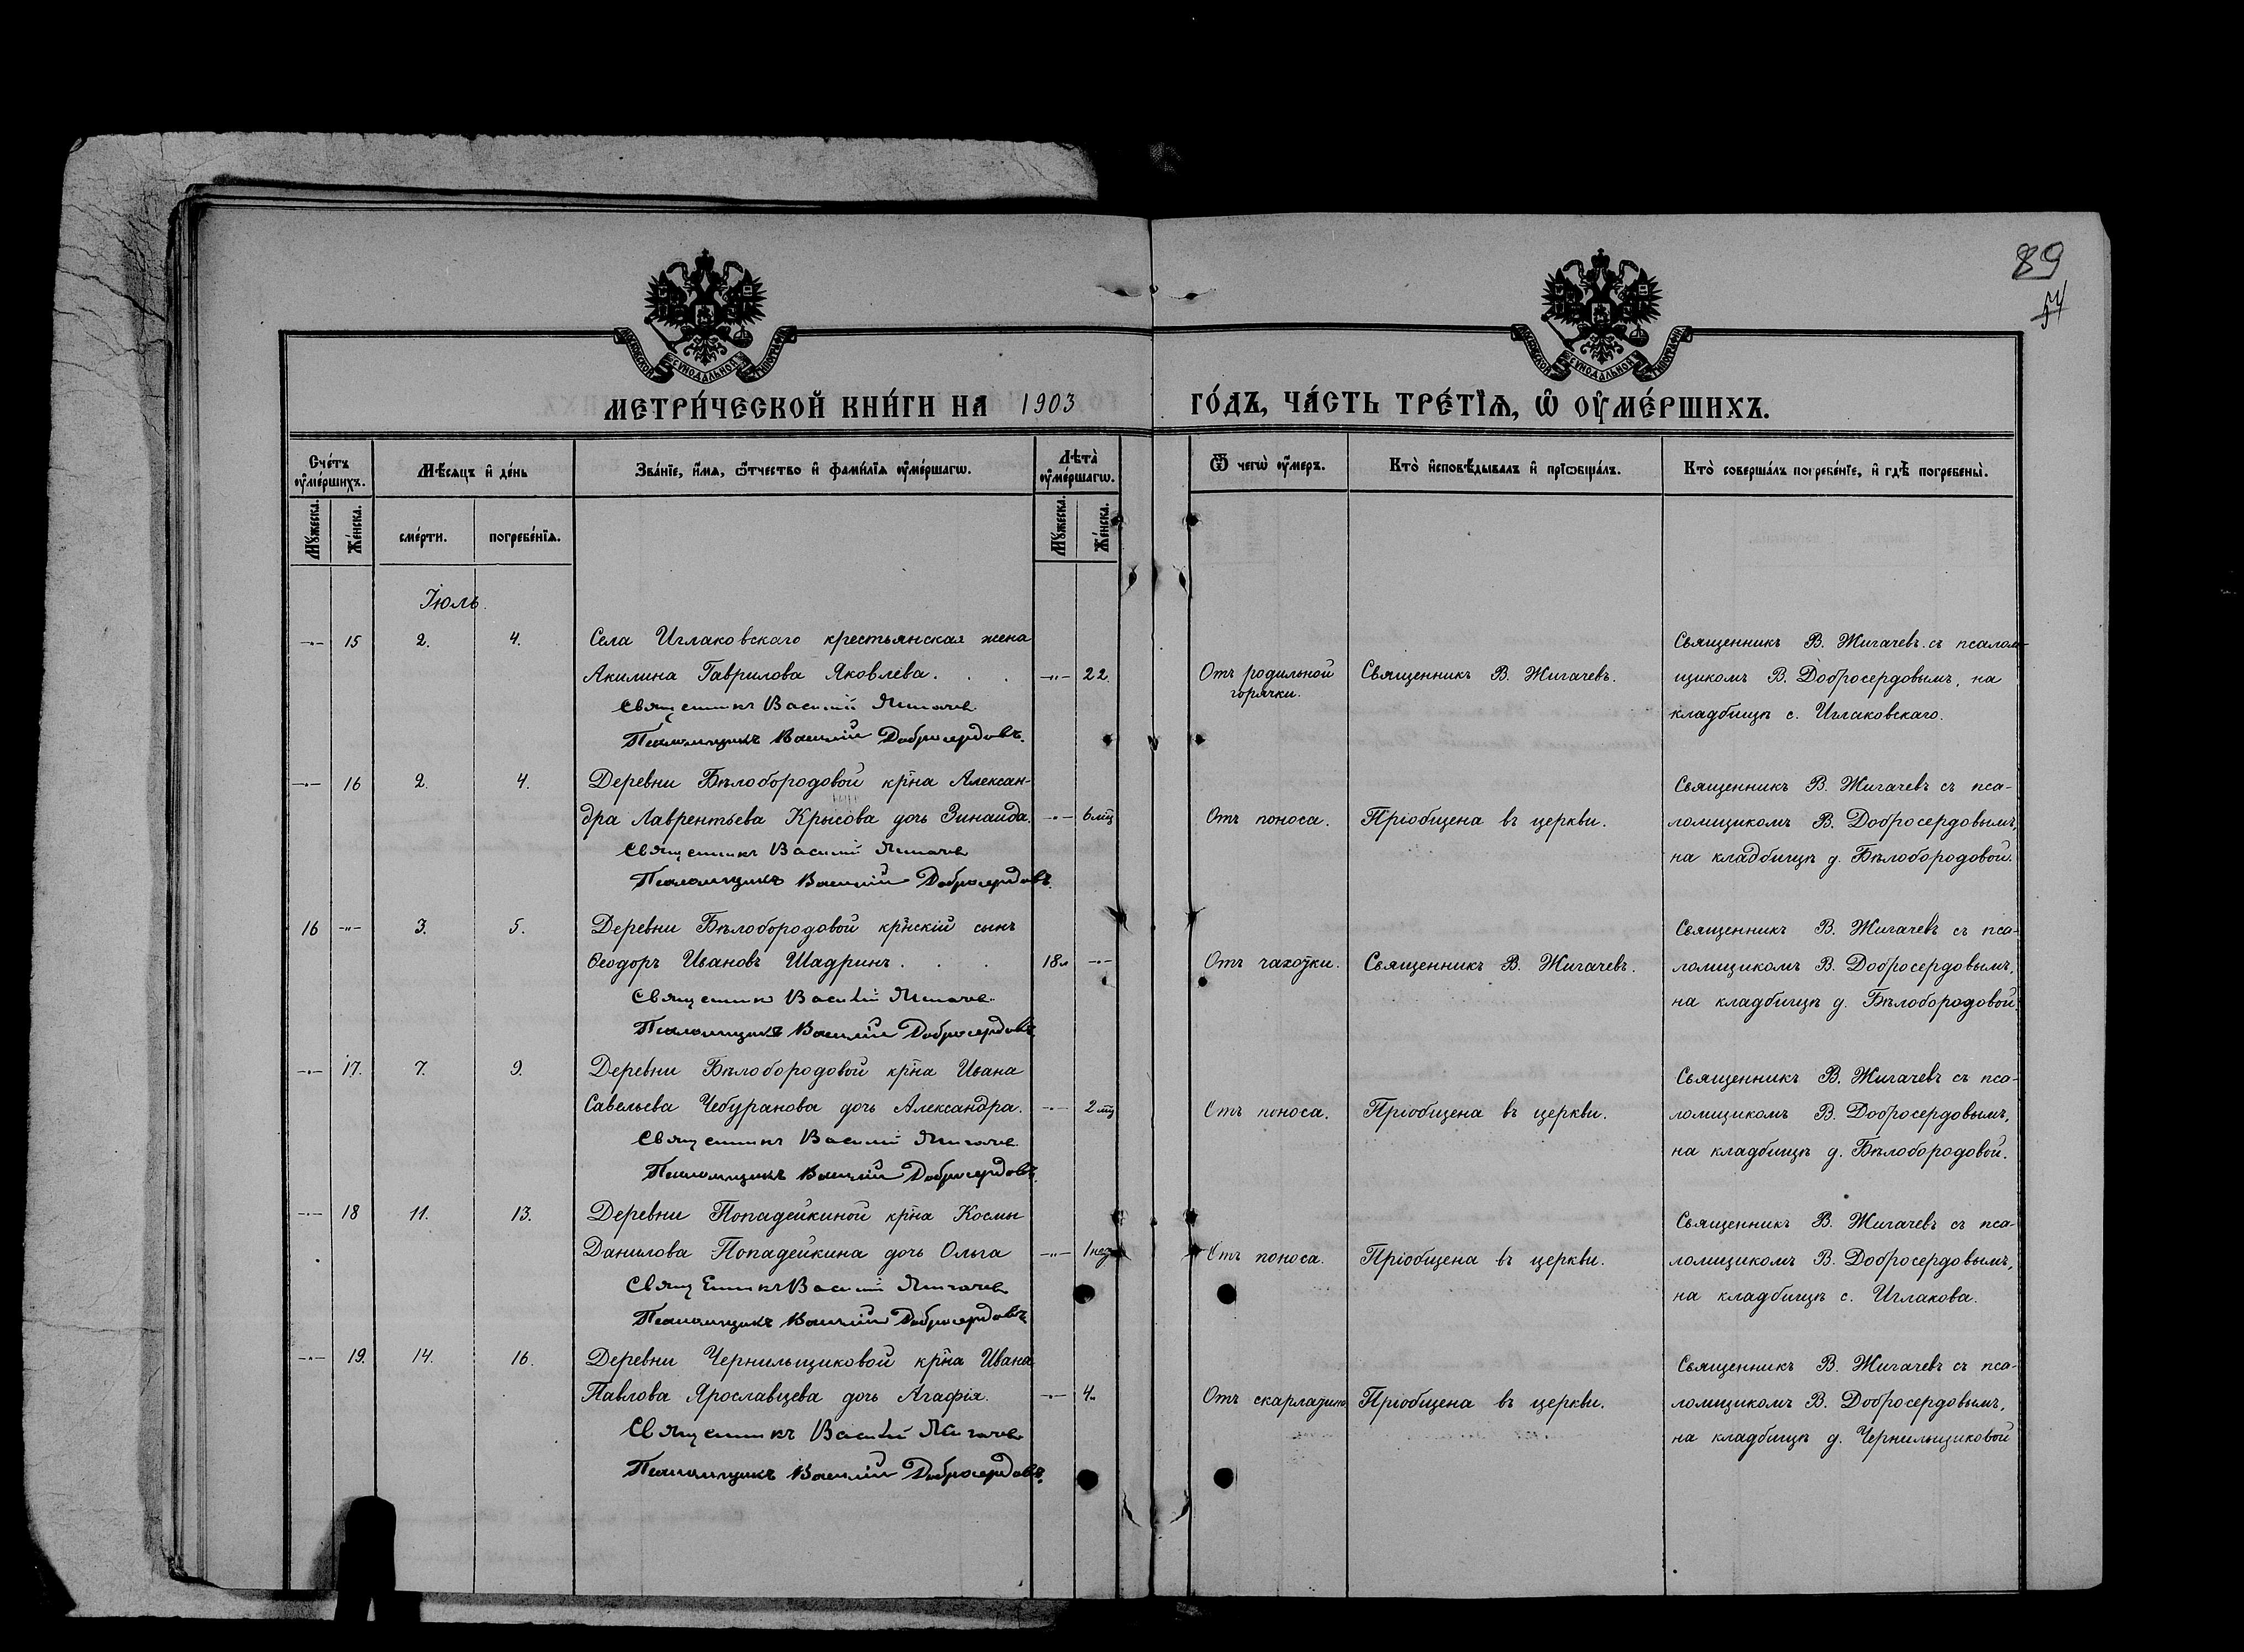 89
54
МОСКОВСКОЙ СѴНОДАЛЬНОЙ ТИПОГРАФІИ
МОСКОВСКОЙ СѴНОДАЛЬНОЙ ТИПОГРАФІИ
МЕТРИ́ЧЕСКОЙ КНИ́ГИ НА 1903 ГО́ДЪ, ЧА́СТЬ ТРЕ́ТЇѦ, Ѡ҆ ОУ҆МЕ́РШИХЪ.
Сче́тъ оу҆ме́ршихъ.
Мѣ́сяцъ и҆ де́нь
Зва́нїе, и҆́мѧ, ѻ҆́тчество и҆ фами́лїѧ оу҆ме́ршагѡ.
Лѣта̀ оу҆ме́ршагѡ.
Ѿ чегѡ̀ оу҆́меръ.
Кто̀ и҆сповѣ́дывалъ и҆ прїѡбща́лъ.
Кто̀ соверша́лъ погребе́нїе, и҆ гдѣ̀ погребены̀.
Мꙋ́жеска.
Же́нска.
сме́рти.
погребе́нїѧ.
Мꙋ́жеска.
Же́нска.
Іюль.
-"- 15 2. 4. Села Иглаковскаго крестьянская жена
Акилина Гаврилова Яковлева. . . -"- 22.
Священникъ Василій Жигачев
Псаломщикъ Василій Добросердовъ.
Отъ родильной
горячки.
Священникъ В. Жигачевъ.
Священникъ В. Жигачевъ съ псалом-
щикомъ В. Добросердовымъ, на
кладбищѣ с. Иглаковскаго.
-"- 16 2. 4. Деревни Бѣлобородовой кр̃на Алексан-
дра Лаврентьева Крысова дочь Зинаида. -"- 6 мц̃
Священникъ Василій Жигачев
Псаломщикъ Василій Добросердовъ.
Отъ поноса.
Пріобщена въ церкви.
Священникъ В. Жигачевъ съ пса-
ломщикомъ В. Добросердовымъ,
на кладбищѣ д. Бѣлобородовой.
16 -"- 3. 5. Деревни Бѣлобородовой кр̃нскій сынъ
Ѳеодоръ Ивановъ Шадринъ . . . 18л -"-
Священник Василій Жигачев
Псаломщикъ Василій Добросердовъ
Отъ чахотки.
Священникъ В. Жигачевъ.
Священникъ В. Жигачевъ съ пса-
ломщикомъ В. Добросердовымъ,
на кладбищѣ д. Бѣлобородовой.
-"- 17. 7. 9. Деревни Бѣлобородовой кр̃на Ивана
Савельева Чебуранова дочь Александра. -"- 2 мц̃
Священникъ Василій Жигачев
Псаломщикъ Василій Добросердовъ.
Отъ поноса.
Пріобщена въ церкви.
Священникъ В. Жигачевъ съ пса-
ломщикомъ В. Добросердовымъ,
на кладбищѣ д. Бѣлобородовой.
-"- 18 11. 13. Деревни Попадейкиной кр̃на Космы
Данилова Попадейкина дочь Ольга -"- 1 нед
Священникъ Василій Жигачев
Псаломщикъ Василій Добросердовъ
Отъ поноса.
Пріобщена въ церкви.
Священникъ В. Жигачевъ съ пса-
ломщикомъ В. Добросердовымъ,
на кладбищѣ с. Иглакова.
-"- 19. 14. 16. Деревни Чернильщиковой кр̃на Ивана
Павлова Ярославцева дочь Агафія. -"- 4.
Священникъ Василій Жигачев
Псаломщикъ Василій Добросердовъ.
Отъ скарладины
Пріобщена въ церкви.
Священникъ В. Жигачевъ съ пса-
ломщикомъ В. Добросердовымъ,
на кладбищѣ д. Чернильщиковой